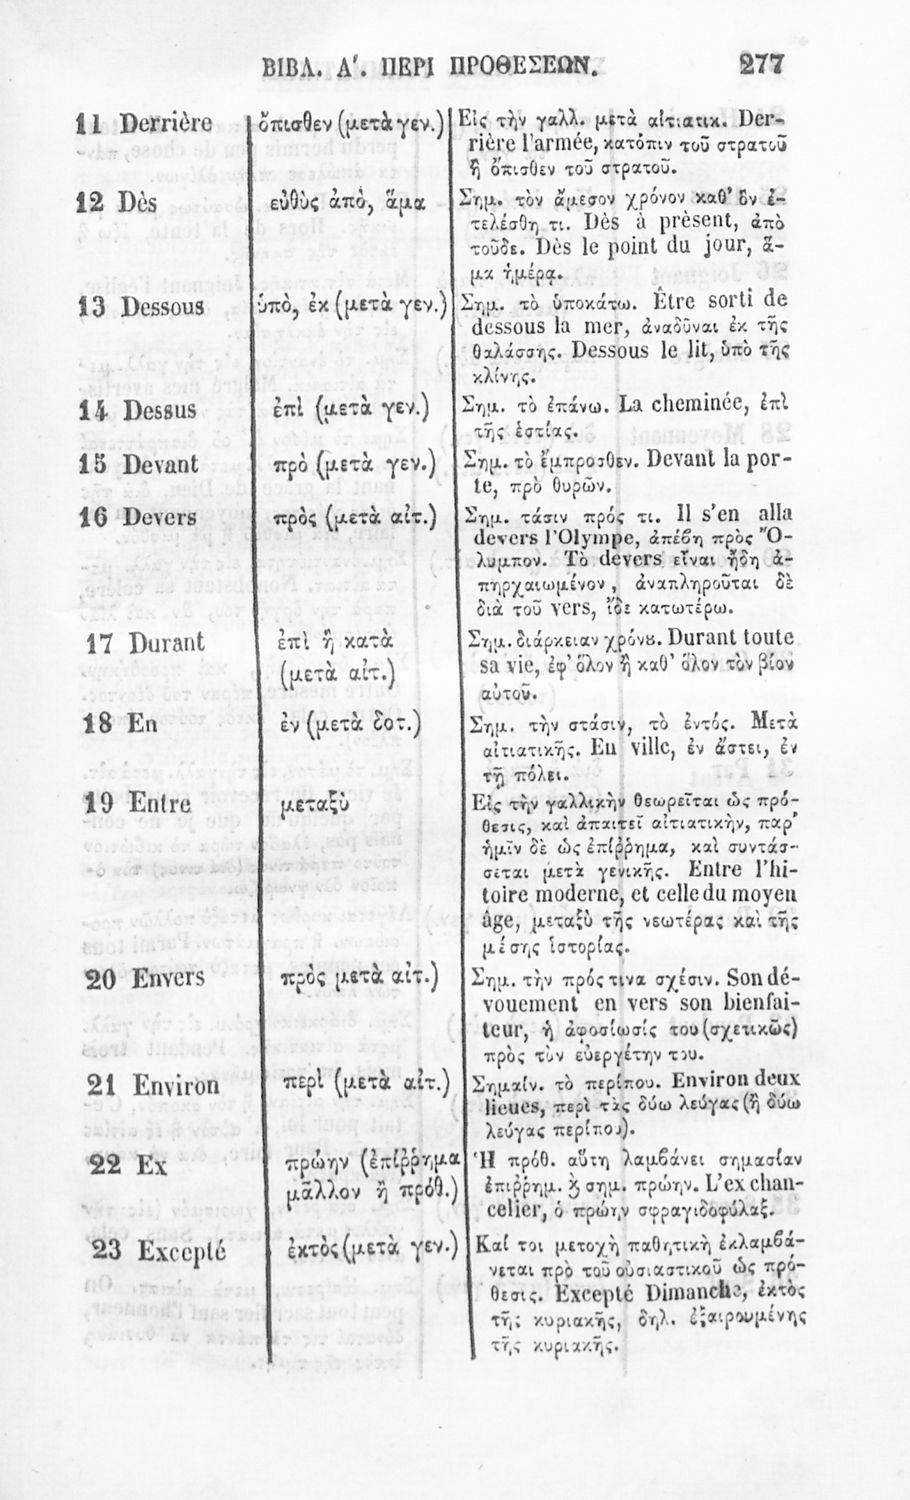 ΒΙΒΛ. Α΄. ΠΕΡΙ ΠΡΟΘΕΣΕΩΝ. 277
11 Derrière ὄπισθεν (μετὰ γεν.) Εἰς τὴν γαλλ. μετὰ αἰτιατικ. Der-
rière l'armée, κατόπιν τοῦ στρατοῦ
ἢ ὄπισθεν τοῦ στρατοῦ.
12 Dès εὐθὺς ἀπὸ, ἅμα Σημ. τὸν ἄμεσον χρόνον καθ' ὃν ἐ-
τελέσθη τι. Dès à prèsent, ἀπὸ
τοῦδε. Dès le point du jour, ἅ-
μα ἡμέρᾳ.
13 Dessous ὑπὸ, ἐκ (μετὰ γεν.) Σημ. τὸ ὑποκάτω. Être sorti de
dessous la mer, ἀναδῦναι ἐκ τῆς
θαλάσσης. Dessous le lit, ὑπὸ τῆς
κλίνης.
14 Dessus ἐπὶ (μετὰ γεν.) Σημ. τὸ ἐπάνω. La cheminée, ἐπὶ
τῆς ἑστίας.
15 Devant πρὸ (μετὰ γεν.) Σημ. τὸ ἔμπροσθεν. Devant la por-
te, πρὸ θυρῶν.
16 Devers πρὸς (μετὰ αἰτ.) Σημ. τάσιν πρός τι. Il s'en alla
devers l'Olympe, ἀπέβη πρὸς Ὄ-
λυμπον. Τὸ devers εἶναι ἤδη ἀ-
πηρχαιωμένον, ἀναπληροῦται δὲ
διὰ τοῦ vers, ἴδε κατωτέρω.
17 Durant ἐπὶ ἢ κατὰ Σημ. διάρκειαν χρόνȣ. Durant toute
(μετὰ αἰτ.) sa vie, ἐφ' ὅλον ἢ καθ' ὅλον τὸν βίον
αὐτοῦ.
18 En ἐν (μετὰ δοτ.) Σημ. τὴν στάσιν, τὸ ἐντός. Μετὰ
αἰτιατικῆς. En ville, ἐν ἄστει, ἐν
τῇ πόλει.
19 Entre μεταξὺ Εἰς τὴν γαλλικὴν θεωρεῖται ὡς πρό-
θεσις, καὶ ἀπαιτεῖ αἰτιατικὴν, παρ'
ἡμῖν δὲ ὡς ἐπίῤῥημα, καὶ συντάσ-
σεται μετὰ γενικῆς. Entre l'hi-
toire moderne, et celle du moyen
âge, μεταξὺ τῆς νεωτέρας καὶ τῆς
μέσης ἱστορίας.
20 Envers πρὸς μετὰ αἰτ.) Σημ. τὴν πρός τινα σχέσιν. Son dé-
vouement en vers son bienfai-
teur, ἡ ἀφοσίωσίς του (σχετικῶς)
πρὸς τὸν εὐεργέτην του.
21 Environ περὶ (μετὰ αἰτ.) Σημαίν. τὸ περίπου. Environ deux
lieues, περὶ τὰς δύω λεύγας (ἢ δύω
λεύγας περίπου).
22 Ex πρώην (ἐπίῤῥημα Ἡ πρόθ. αὕτη λαμβάνει σημασίαν
μᾶλλον ἢ πρόθ.) ἐπιῤῥημ. ϗ σημ. πρώην. L'ex chan-
celier, ὁ πρώην σφραγιδοφύλαξ.
23 Excepté ἐκτὸς (μετὰ γεν.) Καί τοι μετοχὴ παθητικὴ ἐκλαμβά-
νεται πρὸ τοῦ οὐσιαστικοῦ ὡς πρό-
θεσις. Excepté Dimanche, ἐκτὸς
τῆς κυριακῆς, δηλ. ἐξαιρουμένης
τῆς κυριακῆς.